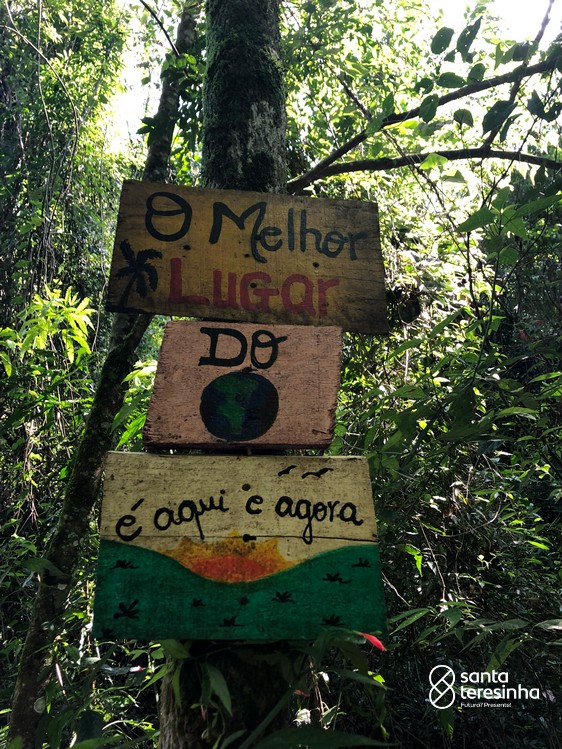 O Melhor
Lugar
DO
é aqui e agora
santa
teresinha
Futuro? Presente!